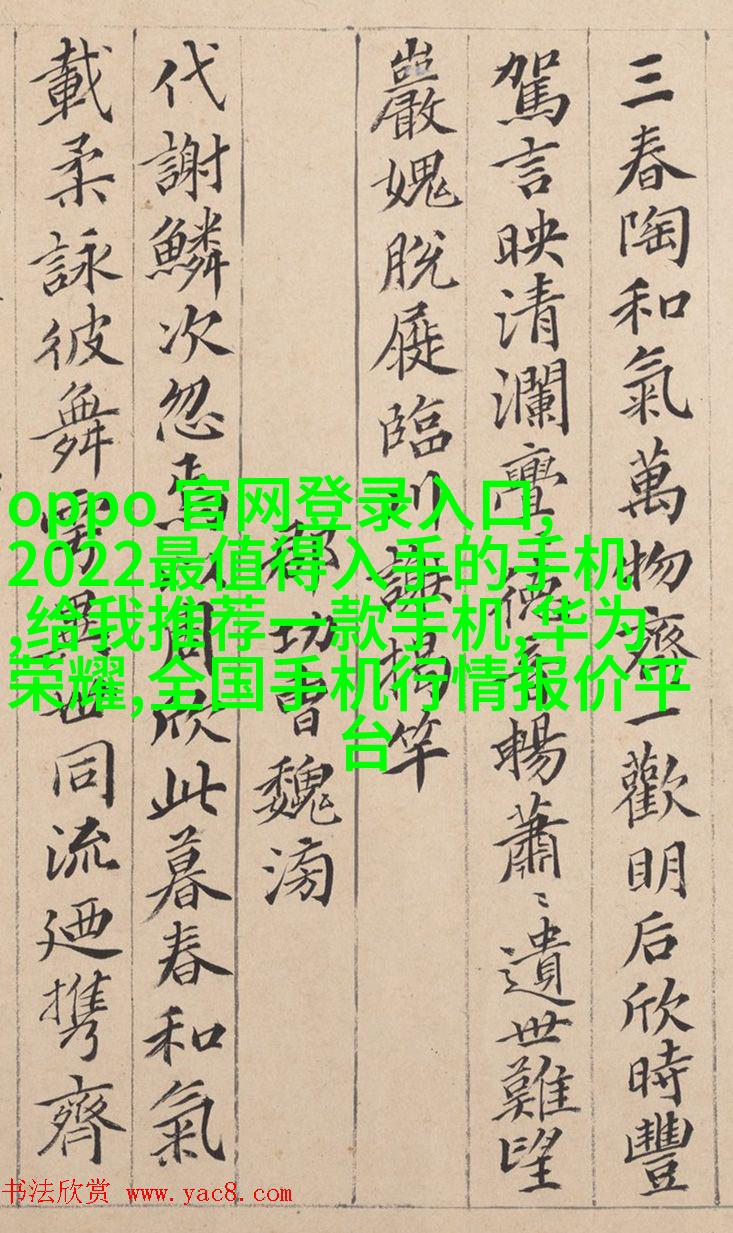 三春陶和氣萬物齊一歡明后欣時豐
駕言映清瀾亹德音暢蕭〻遺世難望
巖愧脫屣臨川謝揭竿
郡功曹魏滂
代謝鱗次忽焉周欣此暮春和氣
載柔詠彼舞雩異世同流廼携齊
oppo 官网登录入口,
2022最值得入手的手机
,给我推荐一款手机,华为
荣耀,全国手机行情报价平
台
书法欣赏 www.yac8.com